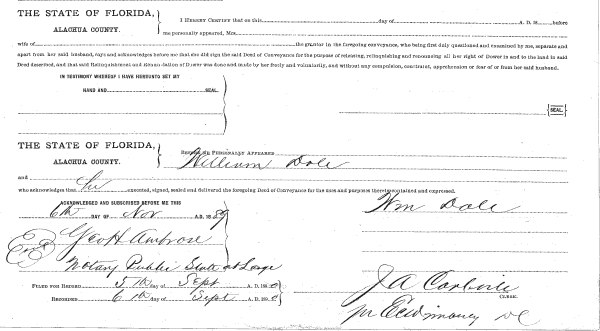 THE STATE OF FLORIDA,
ALACHUA COUNTY.
I HEREBY CERTIFY that on this day of A. D. 18 before
me personally appeared, Mrs.
wife of the grantor in the foregoing conveyance, who being first duly questioned and examined by me, separate and
apart from her said husband, says and acknowledges before me that she did sign the said Deed of Conveyance for the purpose of releasing, relinquishing and renouncing all her right of Dower in and to the land in said
Deed described, and that said Relinquishment and Renunciation of Dower was done and made by her freely and voluntarily, and without any compulsion, constraint, apprehension or fear of or from her said husband.
IN TESTIMONY WHEREOF I HAVE HEREUNTO SET MY
HAND AND SEAL.
SEAL.
THE STATE OF FLORIDA,
ALACHUA COUNTY.
BEFORE ME PERSONALLY APPEARED
William Dole
and
who acknowledges that he executed, signed, sealed and delivered the foregoing Deed of Conveyance for the uses and purposes therein contained and expressed.
ACKNOWLEDGED AND SUBSCRIBED BEFORE ME THIS
6th DAY OF Nov A.D. 1889
Wm Dole
Geo H Ambrose
Notary Public State at Large
FILED FOR RECORD 5th day of Sept A. D. 1890
RECORDED 6th day of Sept A. D. 1890
J A Carlisle
CLERK.
DC